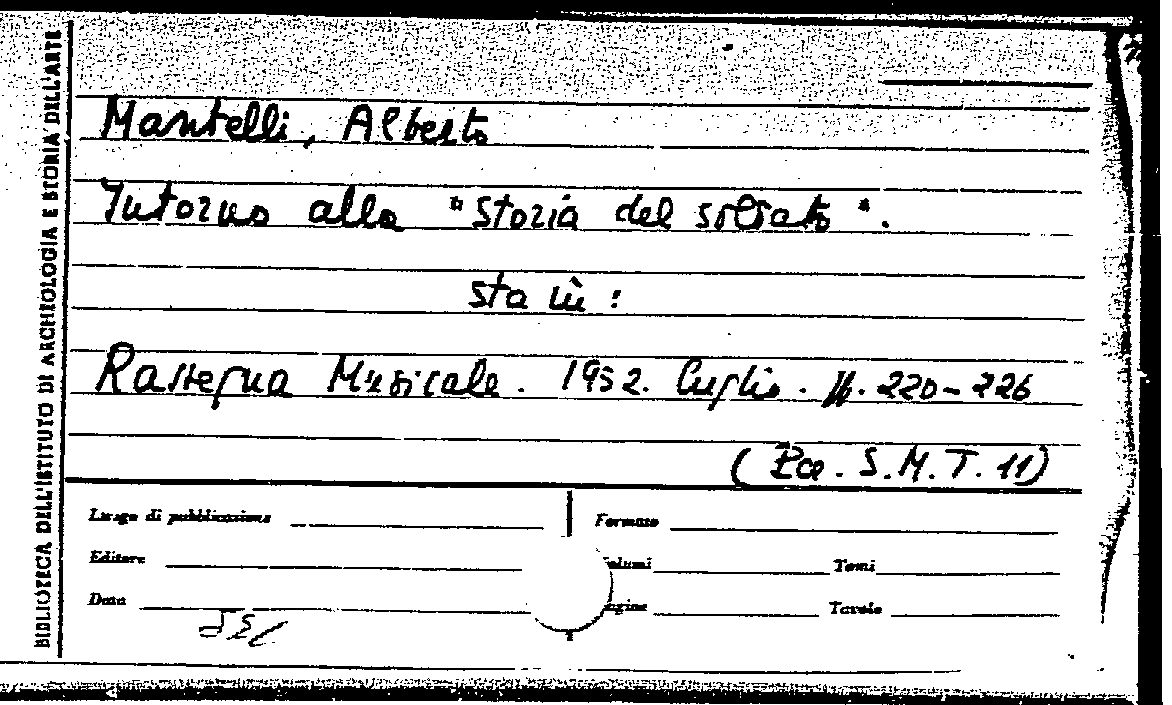 BIBLIOTECA DELL'ISTITUTO DI ARCHEOLOGIA E STORIA DELL'ARTE
Mantelli, Alberto
Intorno alla "Storia del soldato".
sta in:
Rassegna Musicale. 1952. Luglio. pp. 220-226
(Per. S.M.T. 11)
Luogo di pubblicazione Formato
Editore olumi Tomi
Data agine Tavole